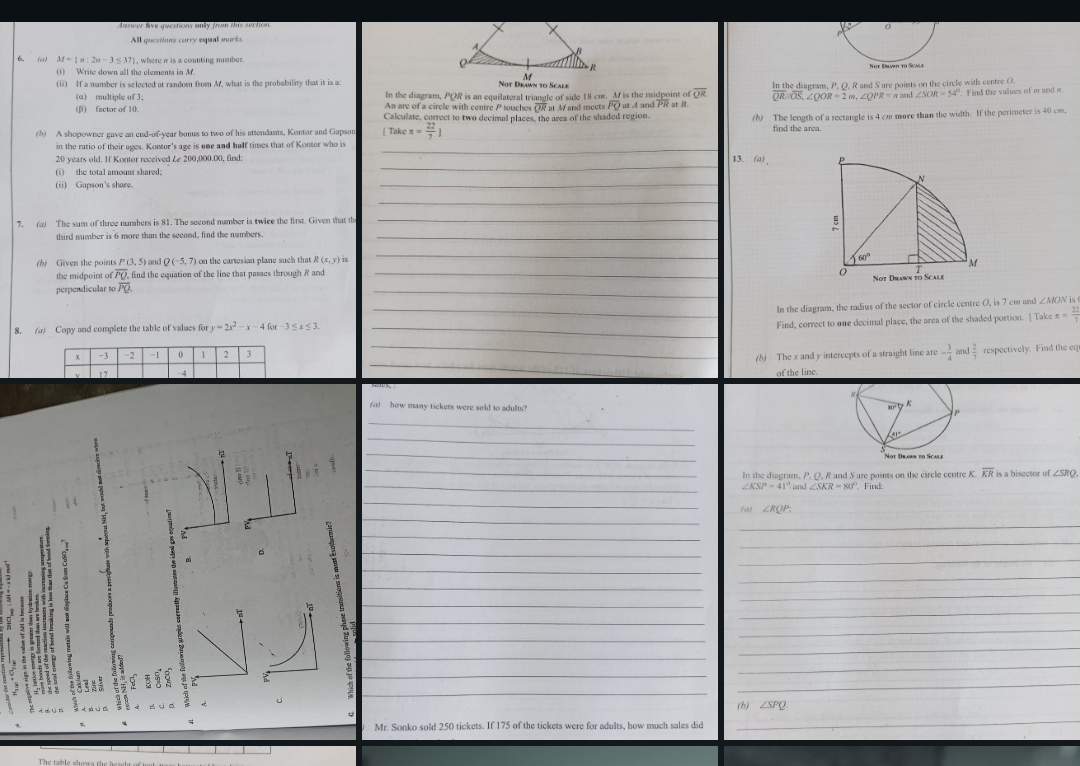 Answer five questions only from this section.
All questions carry equal marks.
6. (a) M = { n : 2n − 3 ≤ 37}, where n is a counting number.
(i) Write down all the elements in M.
(ii) If a number is selected at random from M, what is the probability that it is a:
(α) multiple of 3;
(β) factor of 10.
(b) A shopowner gave an end-of-year bonus to two of his attendants, Kontor and Gapson
in the ratio of their ages. Kontor's age is one and half times that of Kontor who is
20 years old. If Kontor received Le 200,000.00, find:
(i) the total amount shared;
(ii) Gapson's share.
7. (a) The sum of three numbers is 81. The second number is twice the first. Given that the
third number is 6 more than the second, find the numbers.
(b) Given the points P (3, 5) and Q (−5, 7) on the cartesian plane such that R (x, y) is
the midpoint of PQ, find the equation of the line that passes through R and
perpendicular to PQ.
8. (a) Copy and complete the table of values for y = 2x² − x − 4 for −3 ≤ x ≤ 3.
x −3 −2 −1 0 1 2 3
y 17 −4
A B
Q R
M
NOT DRAWN TO SCALE
In the diagram, PQR is an equilateral triangle of side 18 cm. M is the midpoint of QR.
An arc of a circle with centre P touches QR at M and meets PQ at A and PR at B.
Calculate, correct to two decimal places, the area of the shaded region.
[ Take π = 22/7 ]
P O
NOT DRAWN TO SCALE
In the diagram, P, Q, R and S are points on the circle with centre O.
QR//OS, ∠QOR = 2 m, ∠QPR = n and ∠SOR = 54°. Find the values of m and n.
(b) The length of a rectangle is 4 cm more than the width. If the perimeter is 40 cm,
find the area.
13. (a)
P
N
7 cm
60°
O T M
NOT DRAWN TO SCALE
In the diagram, the radius of the sector of circle centre O, is 7 cm and ∠MON is
Find, correct to one decimal place, the area of the shaded portion. [ Take π = 22/7
(b) The x and y intercepts of a straight line are −3/4 and 2/7 respectively. Find the
of the line.
more bonds are formed than are broken.
the speed of the reaction increases with increasing temperature.
the total energy of bond breaking is less than that of bond forming.
Which of the following metals will not displace Cu from CuSO₄(aq)?
A. Calcium
B. Lead
C. Zinc
D. Silver
Which of the following compounds produces a precipitate with aqueous NH₃ but would not dissolve when
excess NH₃ is added?
A. FeCl₃
B. KOH
C. CuSO₄
D. ZnCO₃
Which of the following graphs correctly illustrates the ideal gas equation?
A. PV nT
B. PV nT
C. PV nT
D. PV nT
Which of the following phase transitions is most exothermic?
(a) how many tickets were sold to adults?
Mr. Sonko sold 250 tickets. If 175 of the tickets were for adults, how much sales did
K
80°
P
41°
S
NOT DRAWN TO SCALE
In the diagram, P, Q, R and S are points on the circle centre K. KR is a bisector of ∠SRQ,
∠KSP = 41° and ∠SKR = 80°. Find:
(a) ∠RQP;
(b) ∠SPQ.
The table shows the height of